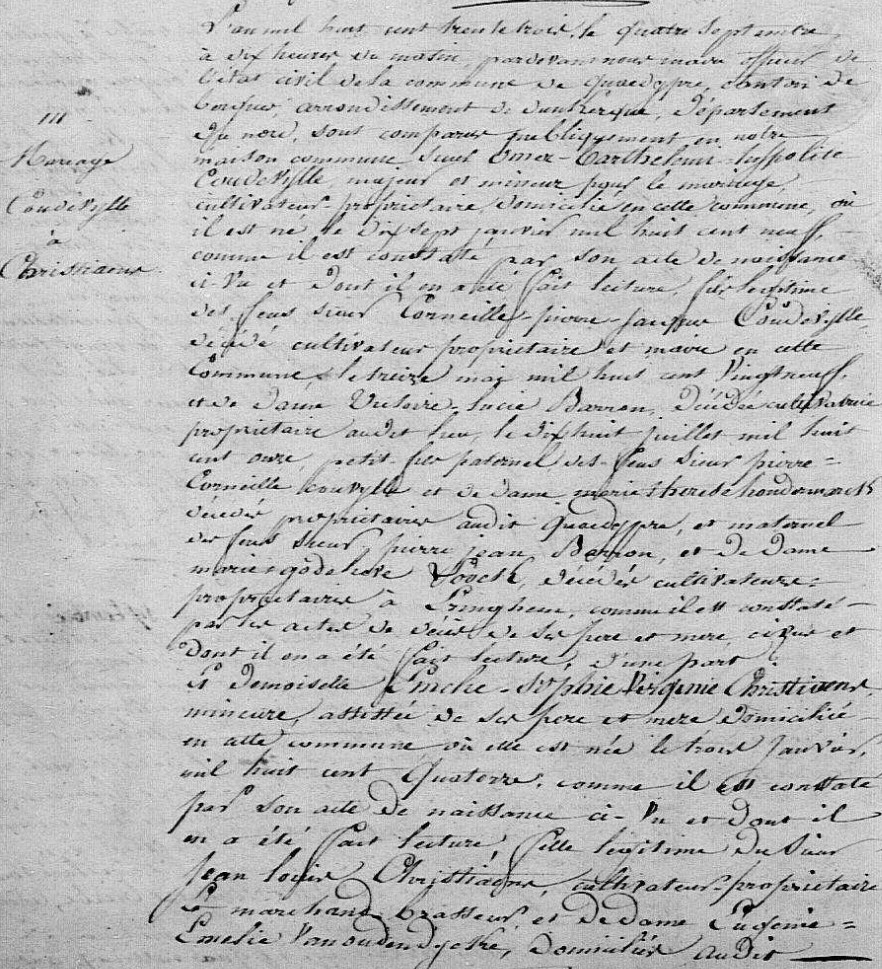 L'an mil huit cent trente trois, le quatre Septembre,
à dix heures du matin, pardevant nous maire officier de
l'état civil de la commune de Quaedypre, canton de
bergues, arrondissement de dunkerque, Département
Du nord, sont comparus publiquement en notre
maison commune Sieur Omer-Barthelemi-hyppolite
Coudevylle, majeur et mineur pour le mariage,
cultivateur propriétaire, domicilié en cette commune, où
il est né le dix sept janvier mil huit cent neuf,
comme il est constaté par son acte de naissance
ci-vu et dont il en a été fait lecture, fils légitime
des feus sieur Corneille-pierre-Jacques Coudevylle,
décédé cultivateur propriétaire et maire en cette
Commune, le treize mai mil huit cent vingt neuf,
et de dame Victoire-Lucie Barron, décédée cultivatrice
propriétaire audit lieu, le dix huit juillet mil huit
cent onze, petit-fils paternel des feus Sieur pierre=
Corneille Couvylle et de dame marie therese
décédés propriétaires audit Quaedypre, et maternel
des feus Sieur pierre jean Barron, et de Dame
marie-godelieve décédés cultivateurs=
propriétaires à Pringhem, comme il est constaté
par les actes de décès de ses père et mère ci-vus et
Dont il en a été fait lecture, d'une part;
Et Demoiselle Emelie-Sophie Virginie Christiaens,
mineure, assistée de ses père et mère domiciliée
en cette commune où elle est née le trois Janvier,
mil huit cent Quatorze, comme il est constaté
par son acte de naissance ci-vu et dont il
en a été fait lecture, fille légitime du Sieur
Jean Louis Christiaens, cultivateur-propriétaire
Et marchand brasseur, et de dame Eugénie=
Emelie Vanoudendycke, Domiciliés audit
111
Mariage
Coudevylle
à
Christiaens